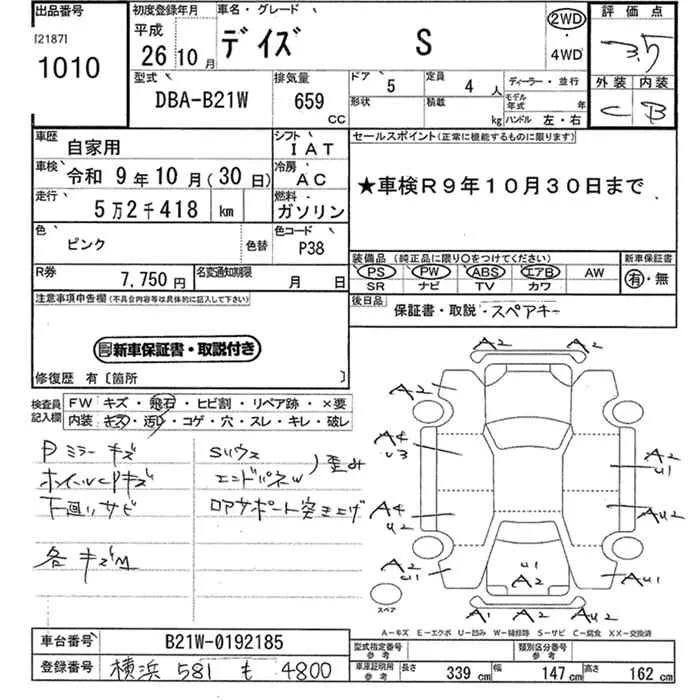 出品番号 初度登録年月 車名・グレード 2WD 評価点
[2187] 平成 デイズ S ・ 3.5
1010 26年10月 4WD 外装 内装
型式 排気量 ドア 5 定員 4人 ディーラー・並行 C B
DBA-B21W 659 CC 形状 積載 kg モデル年式 年
ハンドル 左・右
車歴 自家用 シフト IAT セールスポイント(正常に機能するものに限ります)
車検 令和 9年10月(30日) 冷房 AC ★車検R9年10月30日まで
走行 5万2千418 km 燃料 ガソリン
色 ピンク 色替 色コード P38
装備品(純正品に限り〇をつけてください) 新車保証書
PS PW ABS エアB AW 有・無
SR ナビ TV カワ
R券 7,750円 名変通知期限 月 日
後日品 保証書・取説・スペアキー
注意事項申告欄(不具合内容等は具体的に記入して下さい)
新車保証書・取説付き
修復歴 有〔箇所 〕
検査員記入欄 FW キズ・飛石・ヒビ割・リペア跡・×要
内装 キズ・汚れ・コゲ・穴・スレ・キレ・破レ
Pミラーキズ Sリウス
ホイールcpキズ エンドパネル )歪み
下廻りサビ ロアサポート突き上げ
各キズM
A2 A2
A2 A2
A4 U3 A2 U1
A4 U2 AU2
A2 U1 U1 A2 AU1
A1 A2 AU2
スペア
A-キズ E-エクボ U-凹み W-補修跡 S-サビ C-腐食 XX-交換済
車台番号 B21W-0192185 型式指定番号 参考 類別区分番号 参考
登録番号 横浜 581 も 4800 車庫証明用 参考 長さ 339 cm 幅 147 cm 高さ 162 cm